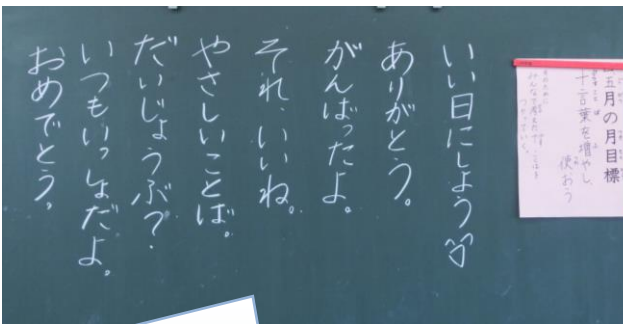 五月の月目標
十言葉を増やし、
使おう
いい日にしよう
ありがとう。
がんばったよ。
それ、いいね。
やさしいことば。
だいじょうぶ?
いつもいっしょだよ。
おめでとう。